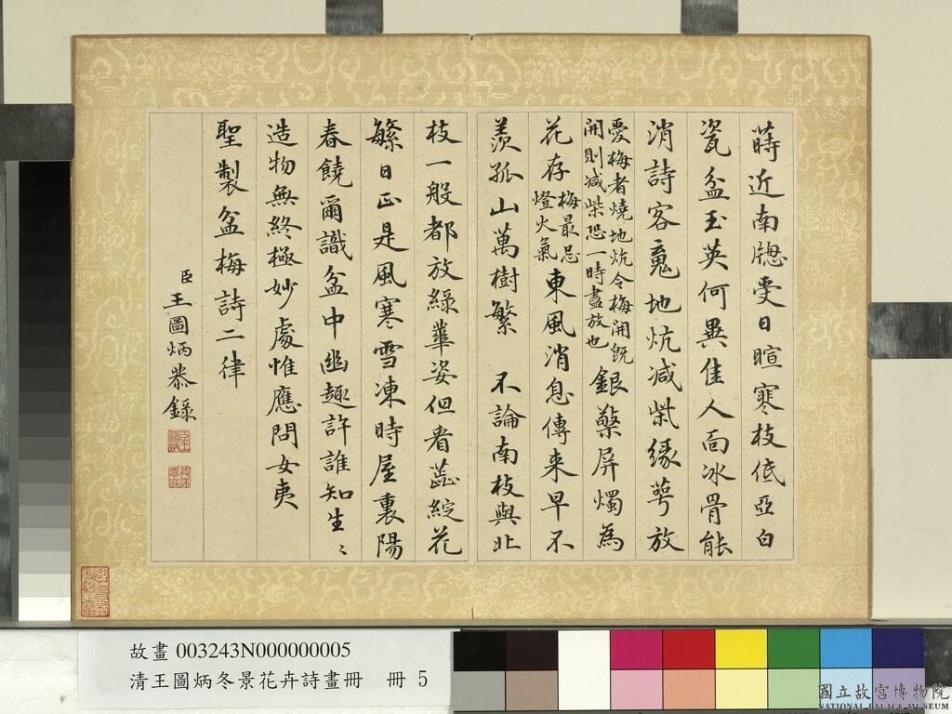 蒔近南牕受日暄寒枝低亞白
瓷盆玉英何異佳人面冰骨能
消詩客䰟地炕减柴緣萼放
愛梅者燒地炕令梅開旣
開則减柴恐一時盡放也
銀檠屏燭為
花存
梅最忌
燈火氣
東風消息傳来早不
羨孤山萬樹繁　不論南枝與北
枝一般都放綠華姿但看蕋綻花
繁日正是風寒雪凍時屋裏陽
春饒爾識盆中幽趣許誰知生〻
造物無終極妙處惟應問女夷
聖製盆梅詩二律
臣王圖炳恭錄
故畫 003243N000000005
清王圖炳冬景花卉詩畫冊　冊 5
國立故宮博物院
NATIONAL PALACE MUSEUM